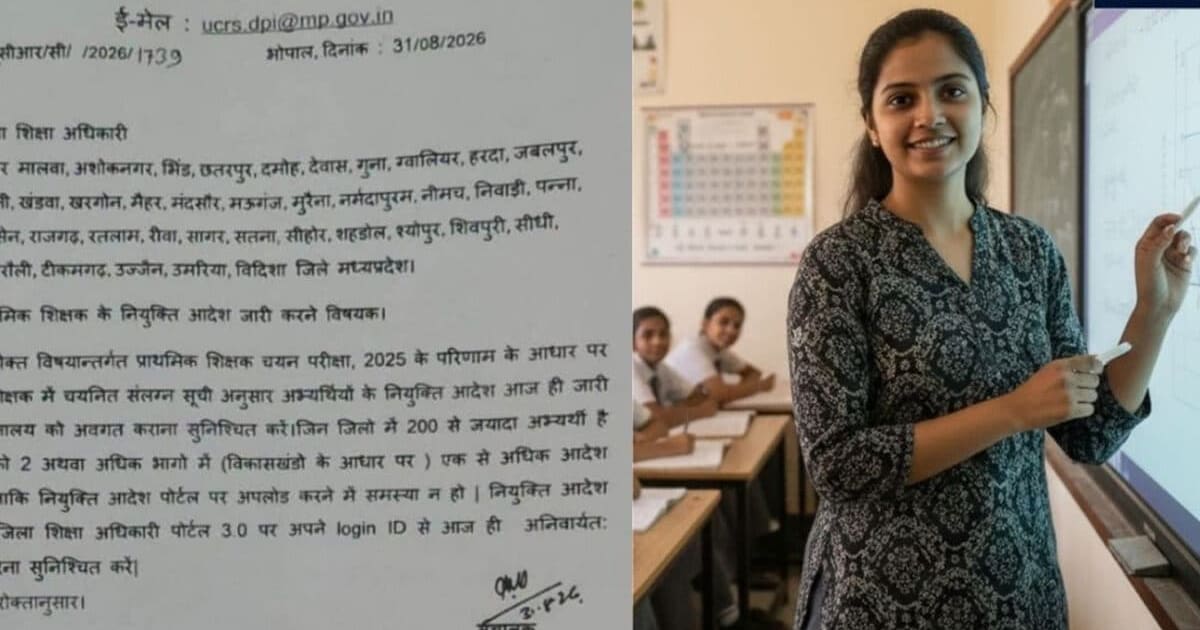 ई-मेल : ucrs.dpi@mp.gov.in
सीआर/सी/ /2026/1739 भोपाल, दिनांक : 31/08/2026
शिक्षा अधिकारी
मालवा, अशोकनगर, भिंड, छतरपुर, दमोह, देवास, गुना, ग्वालियर, हरदा, जबलपुर,
खंडवा, खरगोन, मैहर, मंदसौर, मऊगंज, मुरैना, नर्मदापुरम, नीमच, निवाड़ी, पन्ना,
राजगढ़, रतलाम, रीवा, सागर, सतना, सीहोर, शहडोल, श्योपुर, शिवपुरी, सीधी,
टीकमगढ़, उज्जैन, उमरिया, विदिशा जिले मध्यप्रदेश।
मिक शिक्षक के नियुक्ति आदेश जारी करने विषयक।
क्त विषयान्तर्गत प्राथमिक शिक्षक चयन परीक्षा, 2025 के परिणाम के आधार पर
क्षक में चयनित संलग्न सूची अनुसार अभ्यर्थियों के नियुक्ति आदेश आज ही जारी
ालय को अवगत कराना सुनिश्चित करें।जिन जिलो में 200 से जयादा अभ्यर्थी है
2 अथवा अधिक भागो में (विकासखंडो के आधार पर ) एक से अधिक आदेश
ाकि नियुक्ति आदेश पोर्टल पर अपलोड करने में समस्या न हो | नियुक्ति आदेश
जिला शिक्षा अधिकारी पोर्टल 3.0 पर अपने login ID से आज ही अनिवार्यत:
ना सुनिश्चित करें|
ोक्तानुसार।